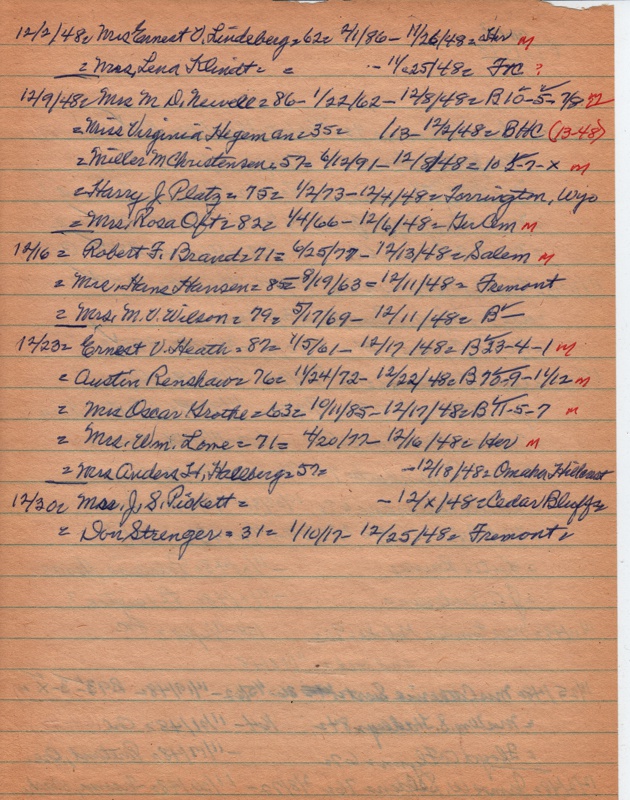 12/2/48= Mrs Ernest O. Lindeberg=62= 2/1/86- 11/26/48= Her M
= Mrs. Lena Klindt= = - 11/25/48= FrC ?
12/9/48= Mrs M. D. Newell=86- 1/22/62- 12/8/48= B10-5-7/8 M
= Miss Virginia Hegeman=35= /13- 12/2/48= BHC (13-48)
= Miller M Christensen=57= 6/12/91- 12/8/48= 10 5-7-x M
= Harry J. Platz= 75= 1/2/73- 12/4/48= Torrington, Wyo
= Mrs. Rosa Oft=82= 1/4/66- 12/6/48= Ger Cm M
12/16 = Robert F. Brand=71= 6/25/77- 12/13/48= Salem M
= Mrs. Hans Hansen=85= 8/19/63= 12/11/48= Fremont
= Mrs. M. V. Wilson= 79= 5/17/69- 12/11/48= B-
12/23= Ernest V. Heath=87= 7/5/61- 12/17/48= B23-4-1 M
= Austin Renshaw= 76= 11/24/72- 12/22/48= B70-9-11/12 M
= Mrs Oscar Grothe=63= 10/11/85- 12/17/48= B11-5-7 M
= Mrs. Wm. Lowe=71= 4/20/77- 12/16/48= Her M
= Mrs Anders H. Hallberg=57= -12/18/48= Omaha,
12/30= Mrs. J. S. Pickett= -12/x/48= Cedar Bluffs
= Don Strenger=31= 1/10/17- 12/25/48= Fremont=